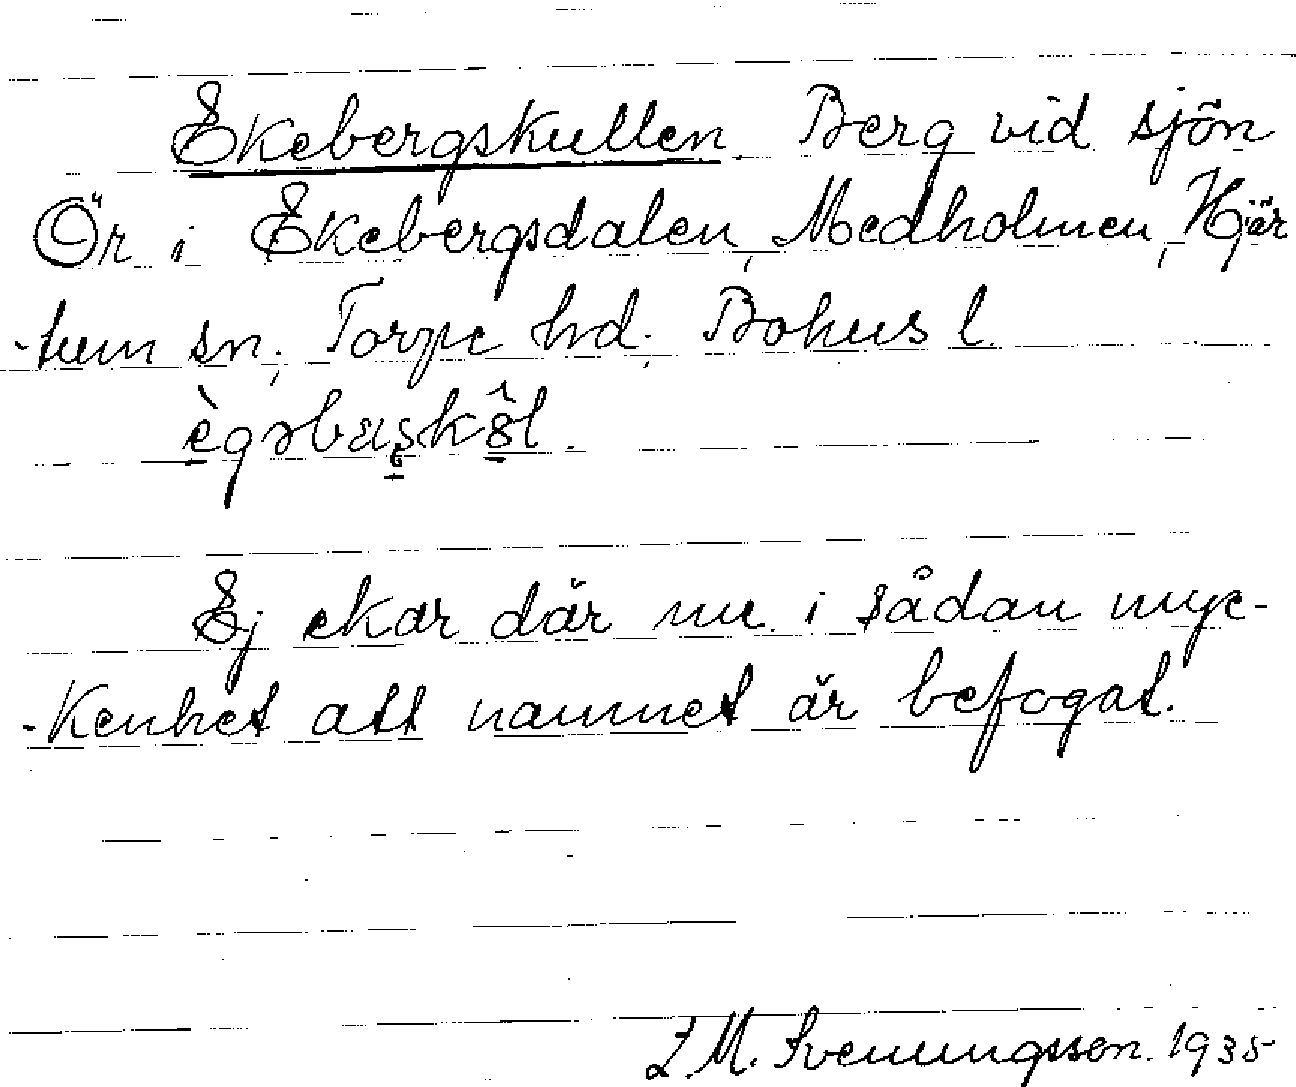 Ekebergskullen. Berg vid sjön
Ör i Ekebergsdalen, Medholmen, Hjär
-tum sn; Torpe hd; Bohus l.
Ej ekar där nu i sådan myc-
-kenhet att namnet är befogat.
J. M. Svenningsson. 1935